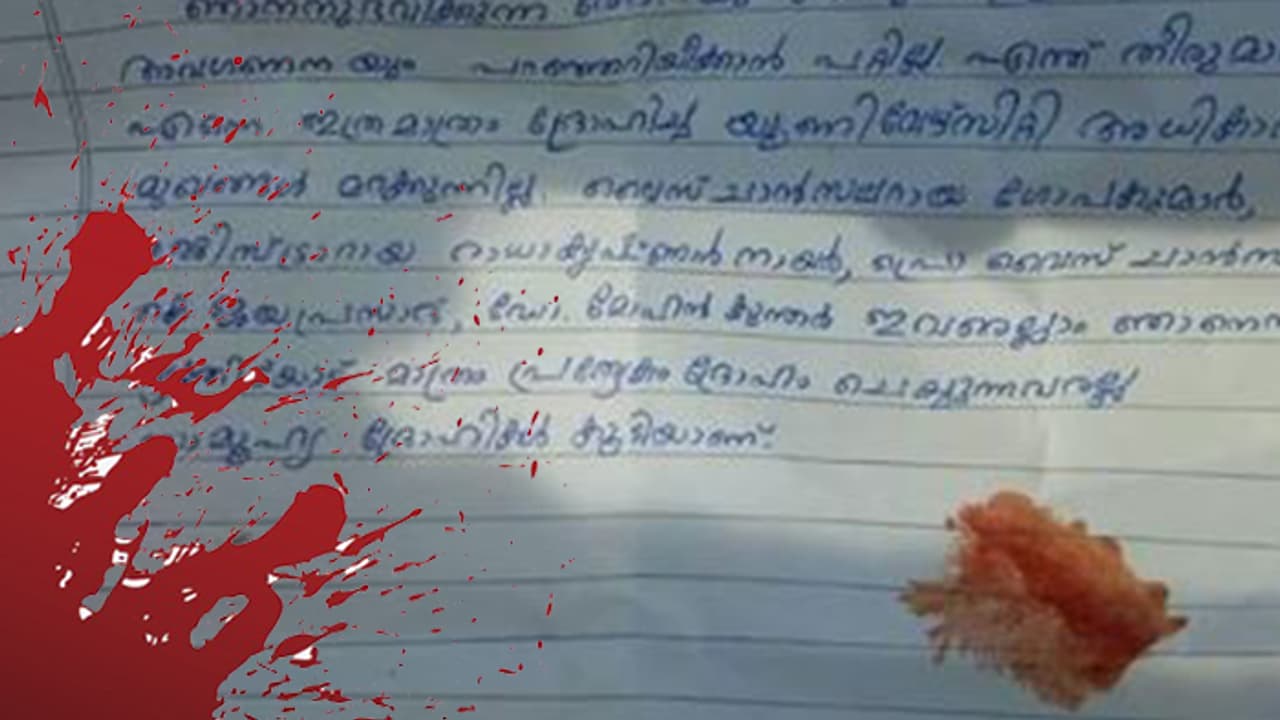 ഞാനനുഭവിക്കുന്ന
അവഗണനയും പറഞ്ഞറിയിക്കാൻ പറ്റില്ല. എന്ത് തീരുമാ
എന്നെ ഇത്രമാത്രം ദ്രോഹിച്ച യൂണിവേഴ്സിറ്റി അധികാ
മുഖങ്ങൾ മറക്കുന്നില്ല. വൈസ് ചാൻസലറായ ഗോപകുമാർ,
റായ രാധാകൃഷ്ണൻ നായർ, പ്രൊ വൈസ് ചാൻസ
ജയപ്രസാദ്, ഡോ. മോഹൻ കുന്തർ ഇവരെല്ലാം ഞാനെന്ന
മാത്രം പ്രത്യേകം ദ്രോഹം ചെയ്യുന്നവരല്ല
ദ്രോഹികൾ കൂടിയാണ്.